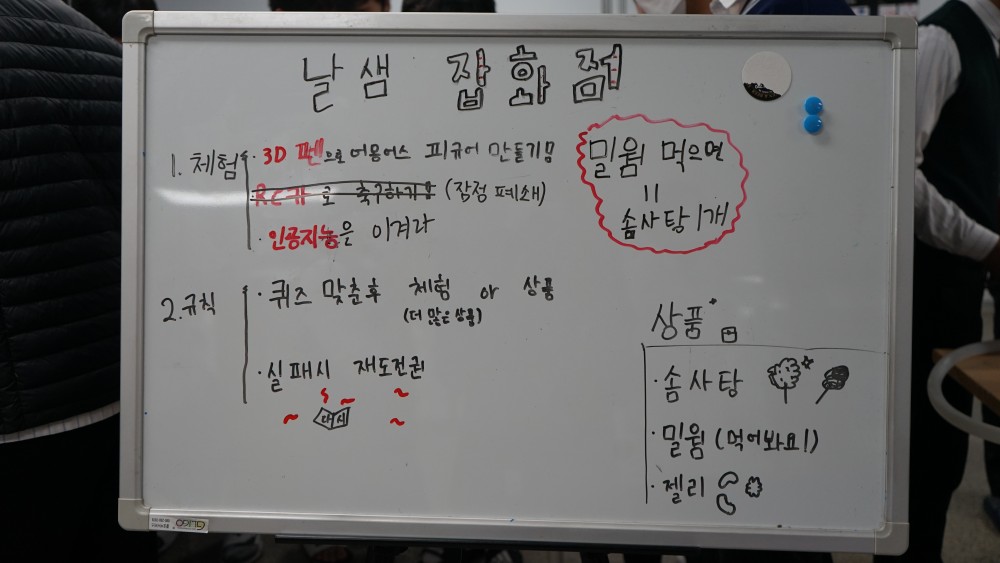 날샘 잡화점
1. 체험
· 3D 펜으로 어몽어스 피규어 만들기!!
RC카로 축구하기!! (잠정 폐쇄)
· 인공지능은 이겨라
밀웜 먹으면
=
솜사탕 1개
2. 규칙
· 퀴즈 맞춘후 체험 or 상품
(더 많은 상품)
· 실패시 재도전권
다시
상품
· 솜사탕
· 밀웜 (먹어봐요!)
· 젤리